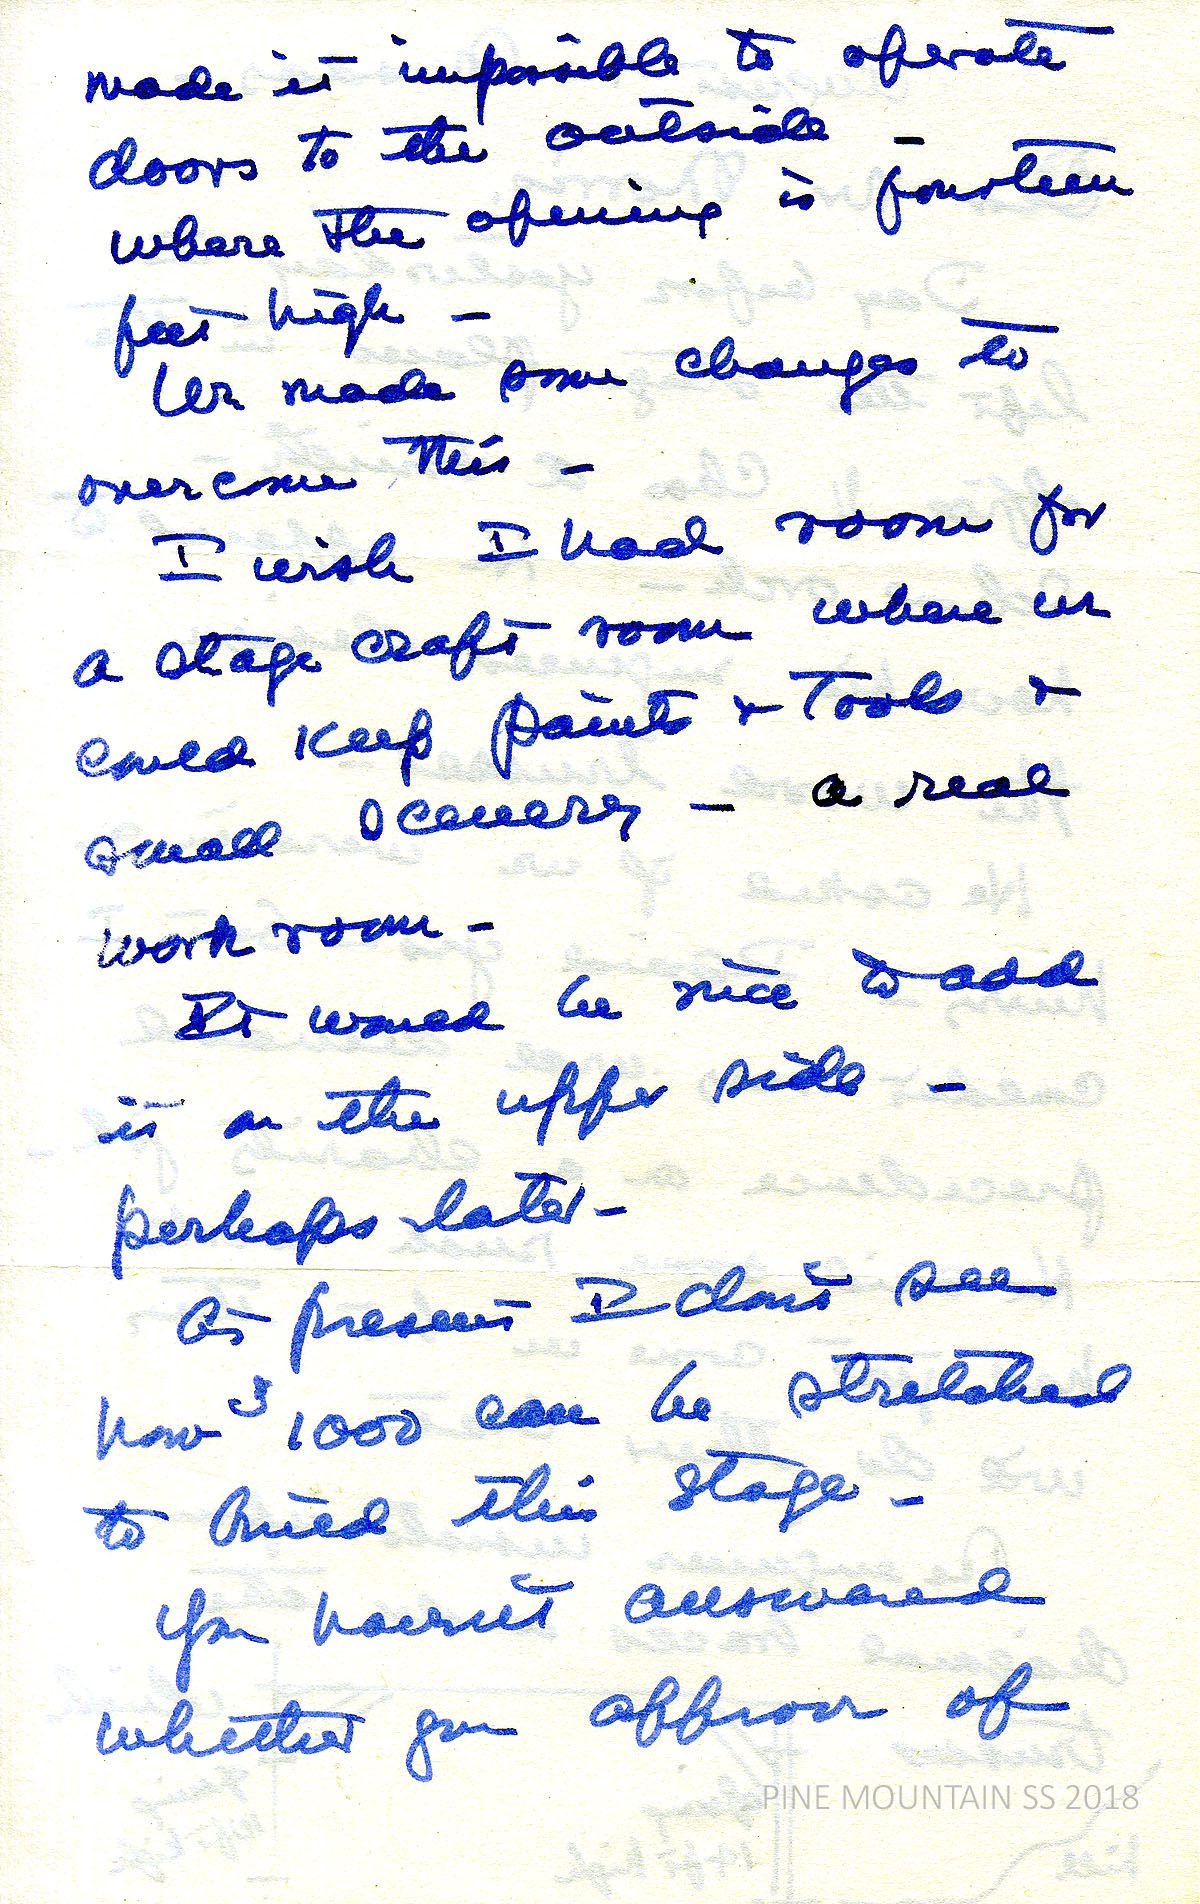 made it impossible to operate
doors to the outside –
where the opening is fourteen
feet high –
We made some changes to
overcome this –
I wish I had room for
a stage craft room where we
could keep paints & Tools &
small scenery – a real
work room –
It would be nice to add
it on the upper side –
perhaps later –
At present I don't see
how $1000 can be stretched
to build this stage –
You haven't answered
whether you approve of
PINE MOUNTAIN SS 2018